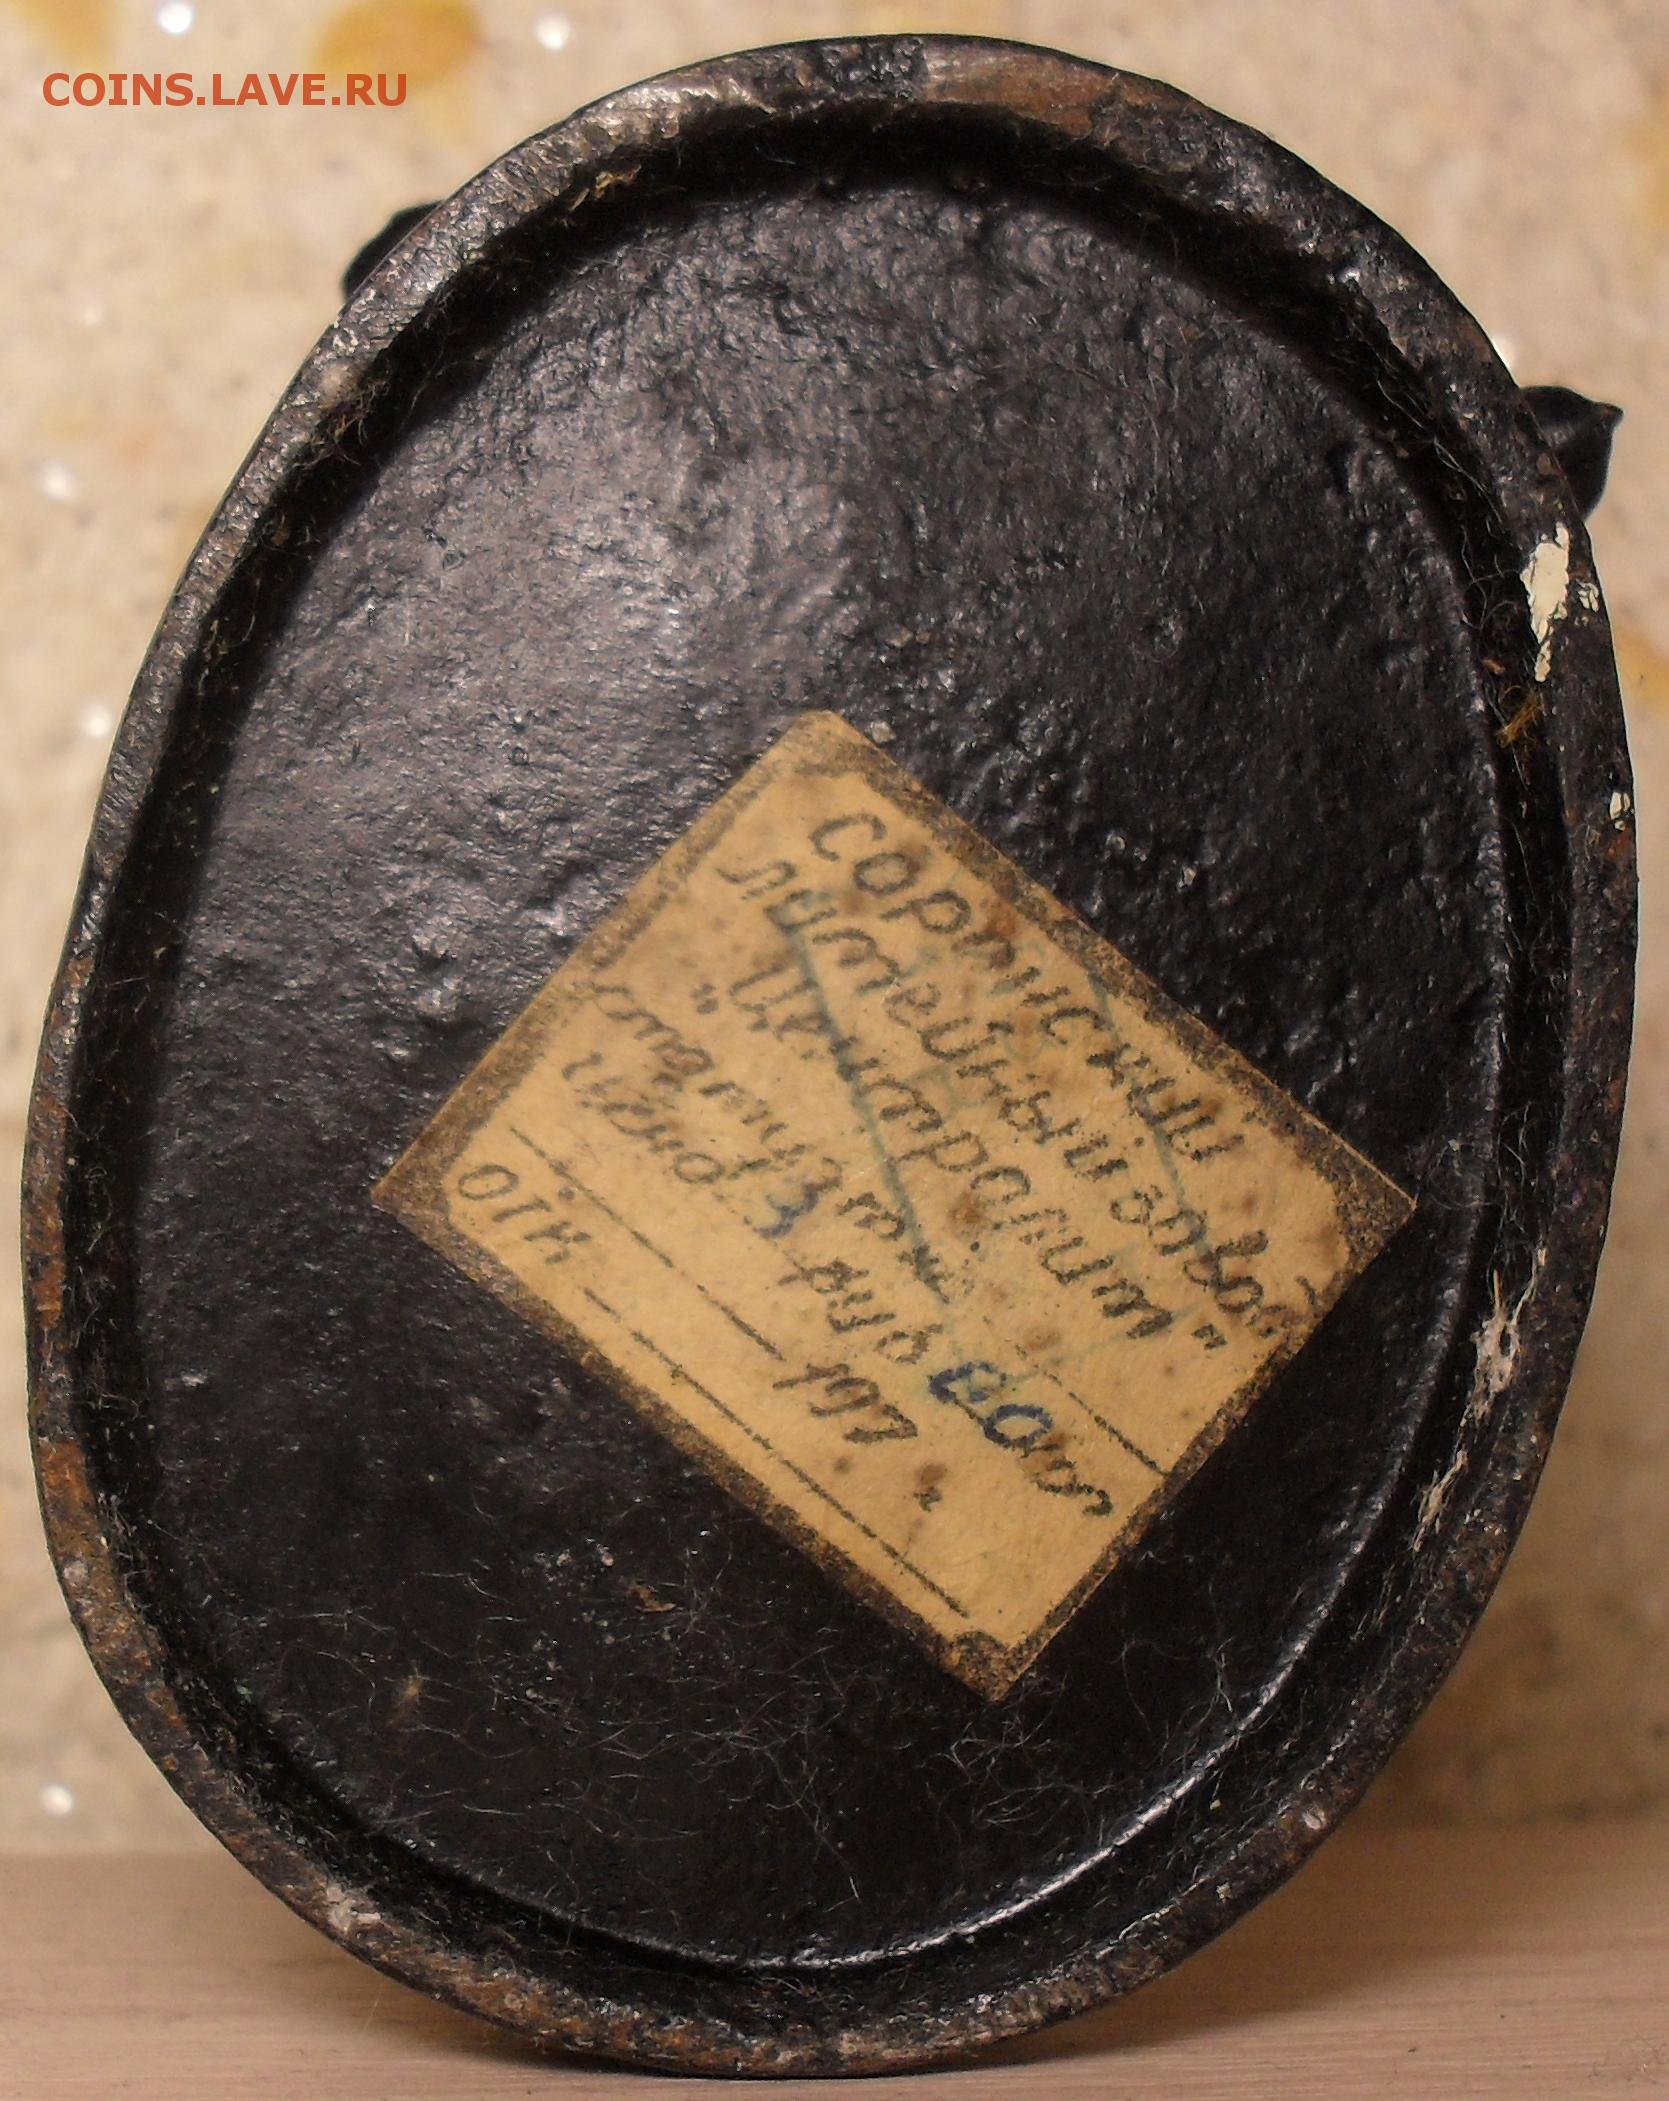 COINS.LAVE.RU
СОРМСКИЙ
литейный завод
"Центролит"
статуэтка
цена 3 руб 80 коп
197 г.
ОТК